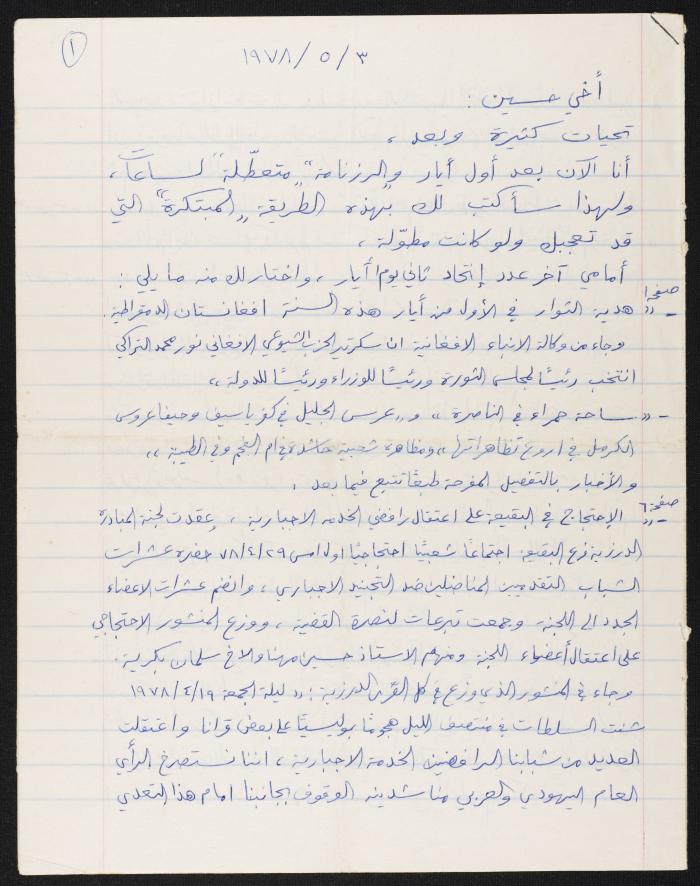 ١
١٩٧٨/٥/٣
أخي حسين :
تحيات كثيرة وبعد ،
أنا الآن بعد أول أيار والرزنامة "متعطّلة" لساعات ،
ولهذا سأكتب لك بهذه الطريقة "المبتكرة" التي
قد تعجبك ولو كانت مطوّلة ،
أمامي آخر عدد إتحاد ثاني يوم أيار ، واختار لك منه ما يلي :
صفحة ١ - هدية الثوار في الأول من أيار هذه السنة افغانستان الدمقراطية .
وجاء من وكالة الانباء الافغانية ان سكرتير الحزب الشيوعي الافغاني نور محمد التراكي
انتخب رئيسًا لمجلس الثورة ورئيسًا للوزراء ورئيسًا للدولة ،،
- ،، ساحة حمراء في الناصرة ،، و ،، عرس الجليل في كفر ياسيف وحيفا عروس
الكرمل في اروع تظاهراتها ،، ومظاهرة شعبية حاشدة في ام الفحم وفي الطيبة ،،
والأخبار بالتفصيل المفرحة طبعًا تتبع فيما بعد .
صفحة ٦ - الإحتجاج في البقيعة على اعتقال رافضي الخدمة الاجبارية ، عقدت لجنة المبادرة
الدرزية فرع البقيعة اجتماعًا شعبيًا احتجاجيًا اول امس ٧٨/٤/٢٩ حضره عشرات
الشباب التقدميين المناضلين ضد التجنيد الاجباري ، وانضم عشرات الاعضاء
الجدد الى اللجنة وجمعت تبرعات لنصرة القضية ، ووزع المنشور الاحتجاجي
على اعتقال أعضاء اللجنة ومنهم الاستاذ حسين مهنا والاخ سلمان بكرية .
وجاء في المنشور الذي وزع في كل القرى الدرزية : ،، ليلة الجمعة ١٩٧٨/٤/١٩
شنت السلطات في منتصف الليل هجومًا بوليسيًا على بعض قرانا واعتقلت
العديد من شبابنا الرافضين الخدمة الاجبارية ، اننا نستصرخ الرأي
العام اليهودي والعربي مناشدينه الوقوف بجانبنا امام هذا التعدي